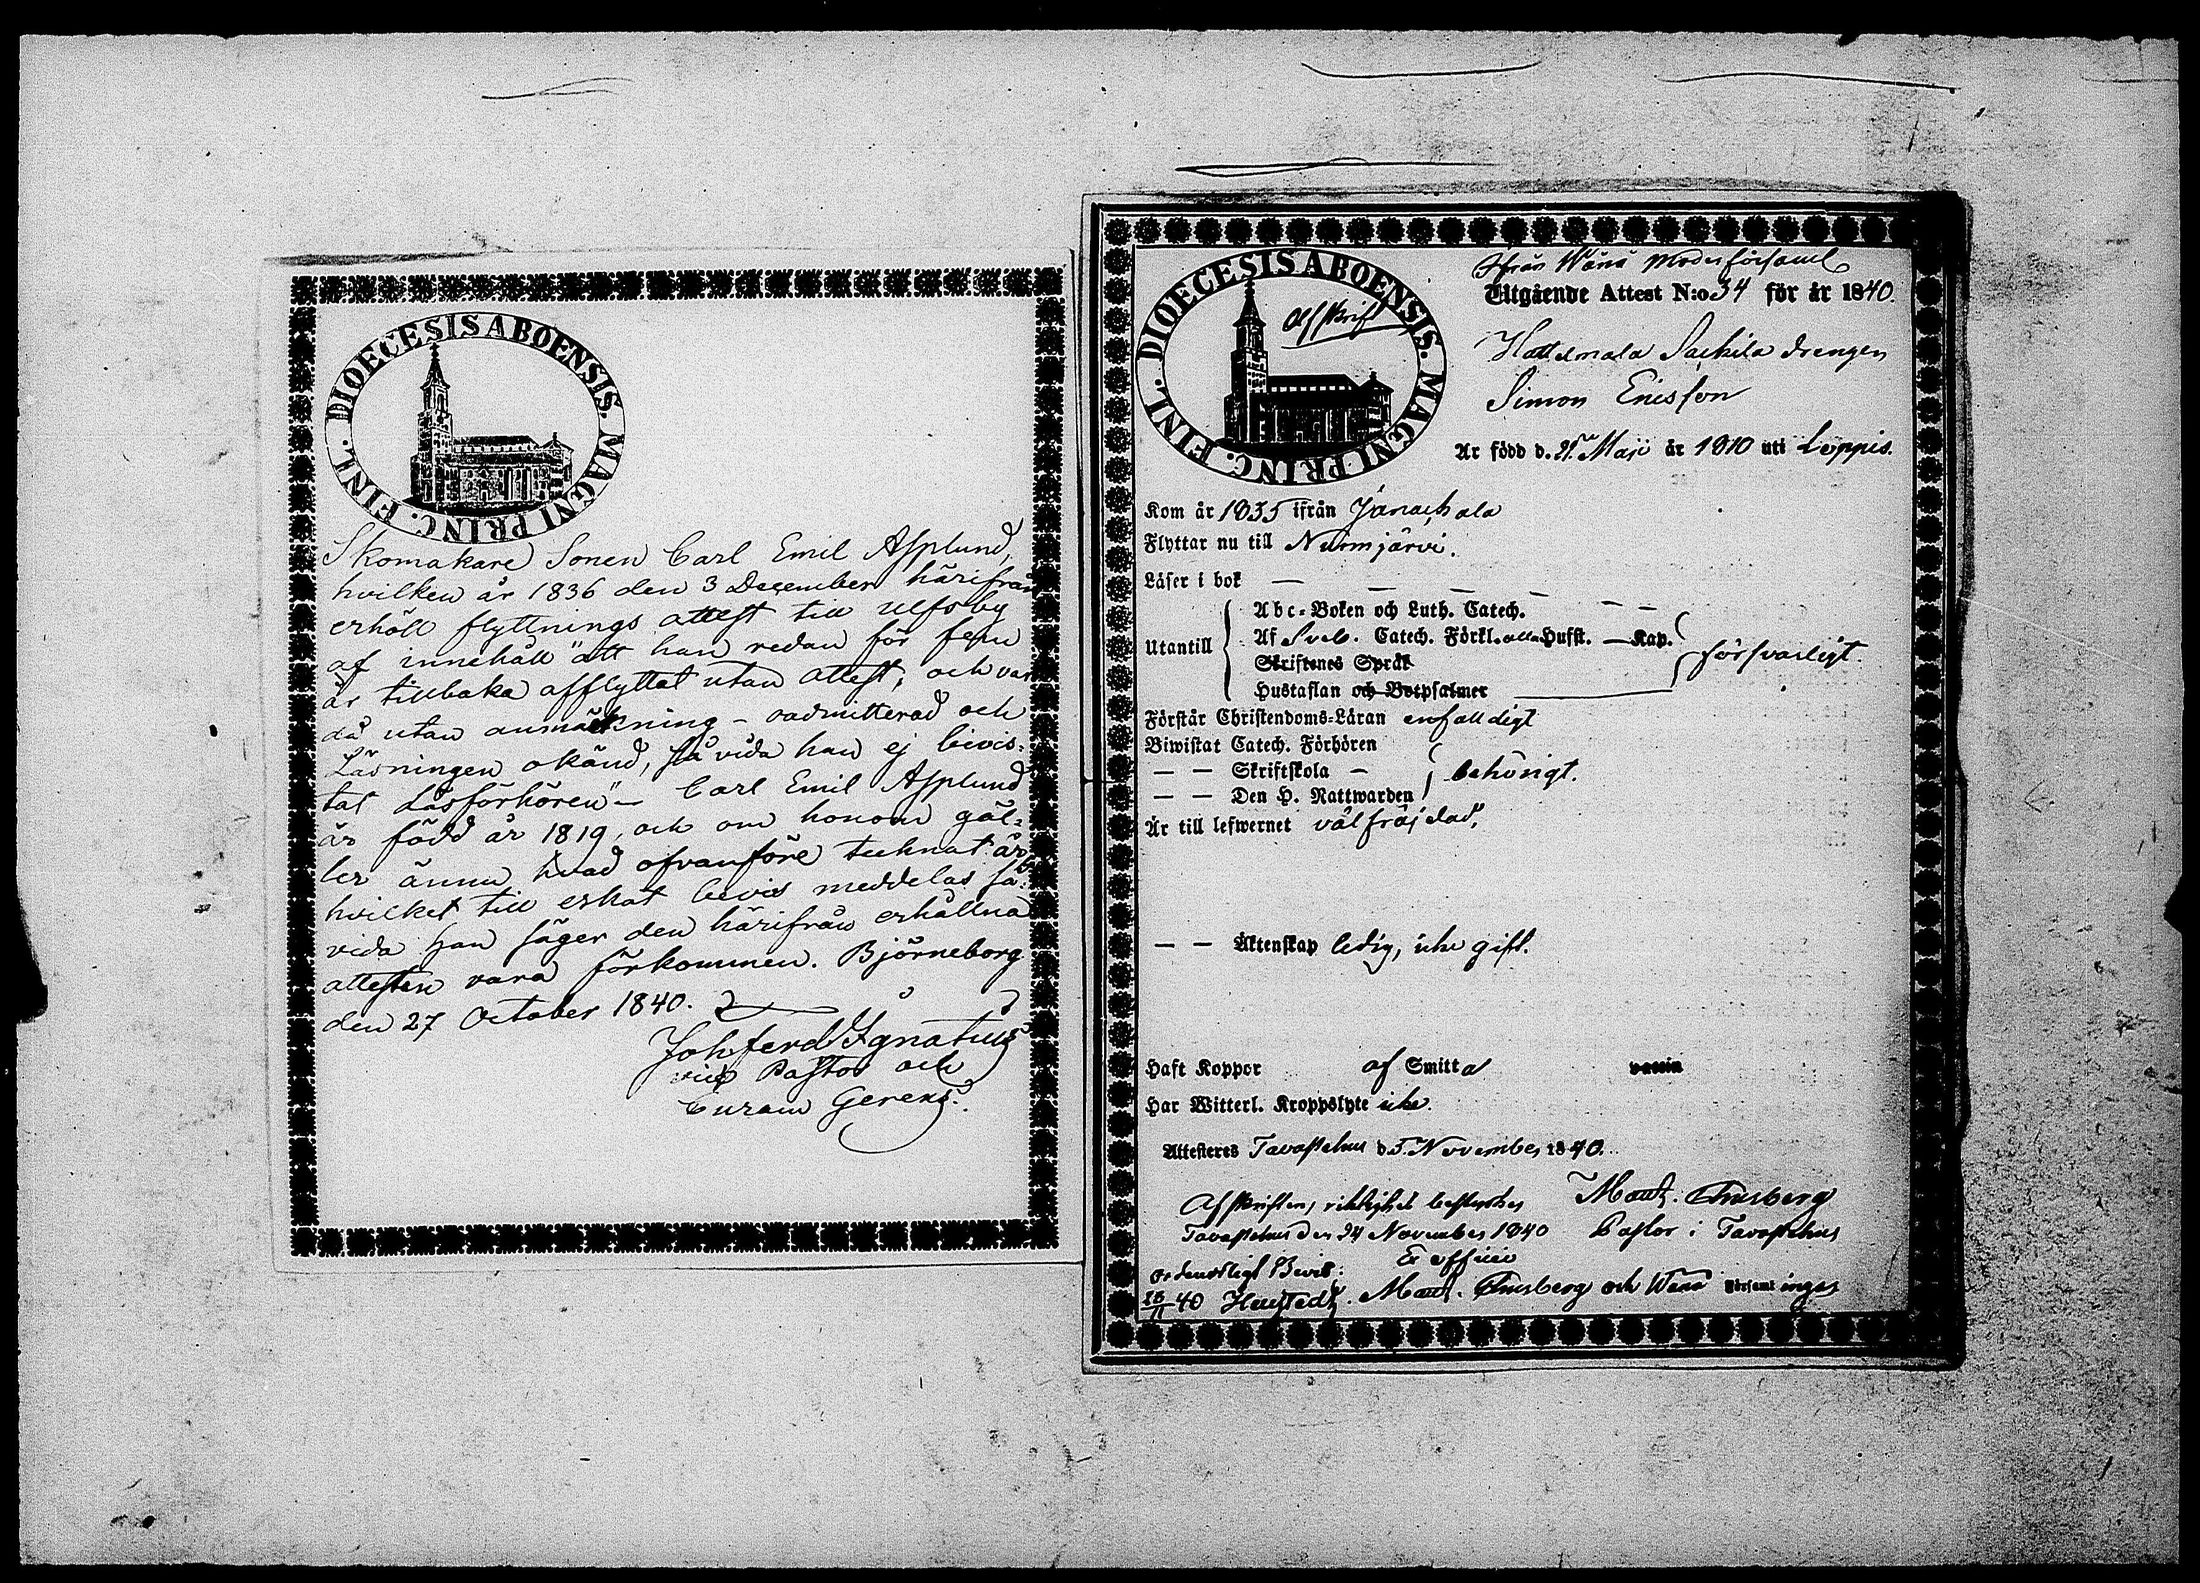 DIOECESIS ABOENSIS. MAGNI PRINC. FINL.
Skomakare Sonen Carl Emil Asplund,
hvilken år 1836 den 3 December härifrån
erhöll flyttnings attest till Ulfsby
af innehåll "att han redan för fem
år tillbaka afflyttat utan attest, och var
då utan anmärkning – oadmitterad och
Läsningen okänd, så vida han ej bevis-
tat Läsförhören" – Carl Emil Asplund
är född år 1819, och om honom gäl-
ler ännu hvad ofvanföre tecknat är
hvilket till erhat bevis meddelas så
vida han säger den härifrån erhållna
attesten vara förkommen. Björneborg
den 27 October 1840.
Joh ferd Ignatius
vice Pastor och
Curam Gerens.
DIOECESIS ABOENSIS. MAGNI PRINC. FINL.
Afskrift
ifrån Wånå Moderförsaml
Utgående Attest N:o 34 för år 1840.
Hattelmala drengen
Simon Ericsson
Är född d. 21 Maji år 1810 uti Loppis.
Kom år 1835 ifrån Janackala
Flyttar nu till Nurmjärvi.
Läser i bok — — — — — —
Utantill
Abc-Boken och Luth. Catech.
Af Sveb. Catech. Förkl. alla Hufst. — Kap.
Skriftenes Språk
Hustaflan och Botpsalmer
försvarligt.
Förstår Christendoms-Läran enfalldigt
Biwistat Catech. Förhören
— — Skriftskola —
— — Den H. Nattwarden
behörigt.
Är till lefwernet välfräjdad,
— — Äktenskap ledig, icke gift.
Haft Koppor af Smitta vaccin
Har Witterl. Kroppslyte icke.
Attesteres Tavastehus d. 5. November 1840.
Afskriftens riktighet bestyrker
Tavastehus den 24 November 1840
Pastor i Tavastehus
Ex officio
ordentligt Bevis:
och Wånå Församlingar